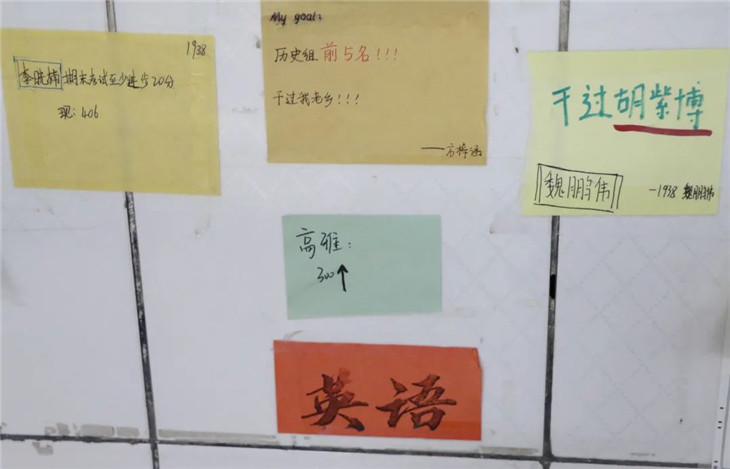 1938
李晓楠 期末考试至少进步20分
现:406
My goal:
历史组前5名!!!
干过我老乡!!!
——方梓涵
干过胡紫博
魏鹏伟
-1938 魏鹏伟
高雅:
300↑
英语